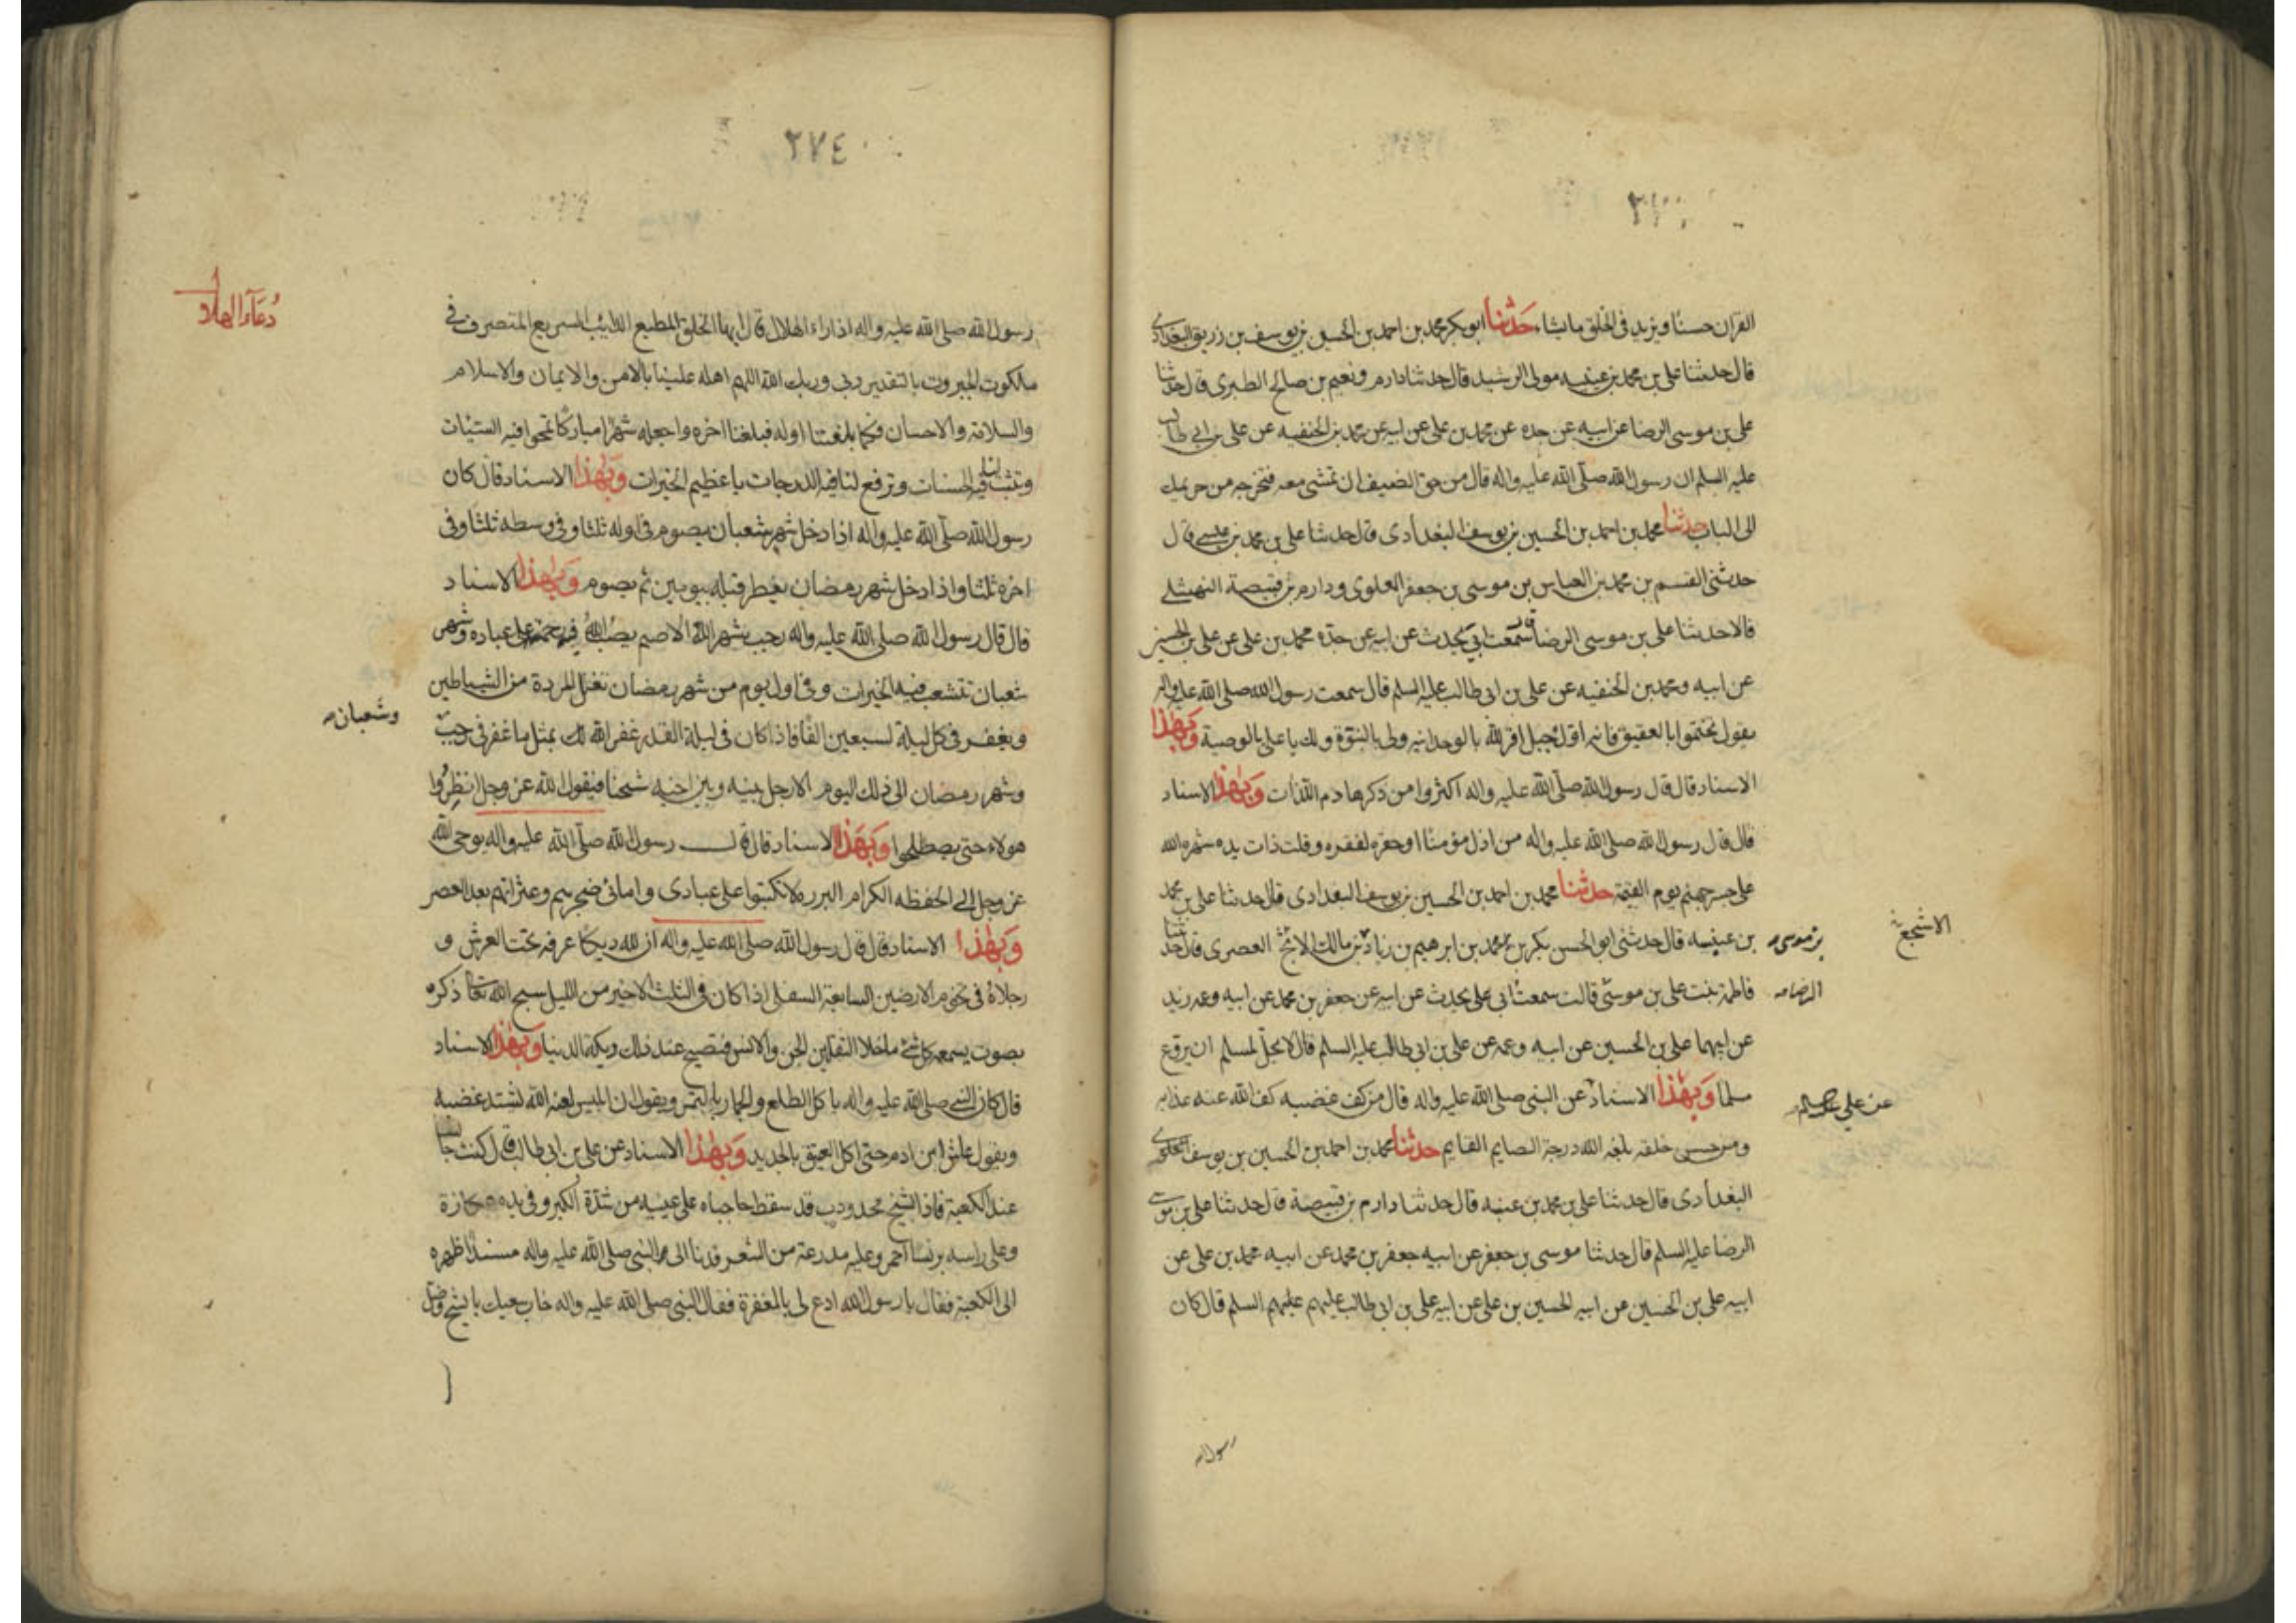 القران حسنا ويزيد فى الخلق ما يشاء حدثنا ابو بكر محمد بن احمد بن الحسين بن يوسف بن زريق البغدادى
قال حدثنا على بن محمد بن عنبسه مولى الرشيد قال حدثنا دارم ونعيم بن صالح الطبرى قال حدثنا
على بن موسى الرضا عن ابيه عن جده عن محمد بن على عن ابيه عن محمد بن الحنفيه عن على بن ابى طالب
عليه السلم ان رسول الله صلى الله عليه واله قال من حق الضيف ان تمشى معه فتخرجه من حريمك
الى الباب حدثنا محمد بن احمد بن الحسين بن يوسف البغدادى قال حدثنا على بن محمد بن عنبسه قال
حدثنى القسم بن محمد بن العباس بن موسى بن جعفر العلوى ودارم بن قبيصة النهشلى
قالا حدثنا على بن موسى الرضا قال سمعت ابى يحدث عن ابيه عن جده محمد بن على عن على بن الحسين
عن ابيه ومحمد بن الحنفيه عن على بن ابى طالب عليه السلم قال سمعت رسول الله صلى الله عليه واله
يقول تختموا بالعقيق فانه اول جبل اقر لله بالوحدانيه ولى بالنبوة ولك يا على بالوصية وبهذا
الاسناد قال قال رسول الله صلى الله عليه واله اكثروا من ذكر هادم اللذات وبهذا الاسناد
قال قال رسول الله صلى الله عليه واله من اذل مؤمنا او حقره لفقره وقلت ذات يده شهره الله
على جسر جهنم يوم القيمة حدثنا محمد بن احمد بن الحسين بن يوسف البغدادى قال حدثنا على بن محمد
بن عنبسه قال حدثنى ابو الحسن بكر بن محمد بن ابرهيم بن زياد بن مالك الاشج العصرى قال حدثتنا
فاطمة بنت على بن موسى قالت سمعت ابى على يحدث عن ابيه عن جعفر بن محمد عن ابيه وعمه زيد
عن ابيهما على بن الحسين عن ابيه وعمه عن على بن ابى طالب عليه السلم قال لا يحل لمسلم ان يروع
مسلما وبهذا الاسناد عن النبى صلى الله عليه واله قال من كف غضبه كف الله عنه عذابه
ومن حسن خلقه بلغه الله درجة الصايم القايم حدثنا محمد بن احمد بن الحسين بن يوسف
البغدادى قال حدثنا على بن محمد بن عنبسه قال حدثنا دارم بن قبيصة قال حدثنا على بن موسى
الرضا عليه السلم قال حدثنا موسى بن جعفر عن ابيه جعفر بن محمد عن ابيه محمد بن على عن
ابيه على بن الحسين عن ابيه الحسين بن على عن ابيه على بن ابى طالب عليهم عليهم السلم قال كان
الاشجع
بن موسى
الرضا
عن علي عليه السلم
رسول الله
٢٧٤
رسول الله صلى الله عليه واله اذا راء الهلال قال ايها الخلق المطيع الدايب السريع المتصرف فى
ملكوت الجبروت بالتقدير ربى وربك الله اللهم اهله علينا بالامن والايمان والاسلام
والسلامة والاحسان وكما بلغتنا اوله فبلغنا اخره واجعله شهرا مباركا تمحوا فيه السيئات
وتثبت لنا فيه الحسنات وترفع لنا فيه الدرجات يا عظيم الخيرات وبهذا الاسناد قال كان
رسول الله صلى الله عليه واله اذا دخل شهر شعبان يصوم فى اوله ثلثا وفى وسطه ثلثا وفى
اخره ثلثا واذا دخل شهر رمضان يفطر قبله بيومين ثم يصوم وبهذا الاسناد
قال قال رسول الله صلى الله عليه واله رجب شهر الله الاصم يصب الله فيه رحمته على عباده وشهر
شعبان تتشعب فيه الخيرات وفى اول يوم من شهر رمضان تغل المردة من الشياطين
ويغفر فى كل ليلة لسبعين الفا فاذا كان فى ليلة القدر غفر الله لك بمثل ما غفر فى رجب
وشهر رمضان الى ذلك اليوم الا رجل بينه وبين اخيه شحنا فيقول الله عز وجل انظروا
هولاء حتى يصطلحوا وبهذا الاسناد قال قال رسول الله صلى الله عليه واله يوحى الله
عز وجل الى الحفظه الكرام البرره لا تكتبوا على عبادى وامائى ضجرهم وعثراتهم بعد العصر
وبهذا الاسناد قال قال رسول الله صلى الله عليه واله ان لله ديكا عرفه تحت العرش و
رجلاه فى تخوم الارضين السابعة السفلى اذا كان فى الثلث الاخير من الليل سبح الله تعالى ذكره
بصوت يسمعه كل شئ ما خلا الثقلين الجن والانس فتصيح عند ذلك ديكة الدنيا وبهذا الاسناد
قال كان النبى صلى الله عليه واله ياكل الطلع والجمار بالتمر ويقول ان ابليس لعنه الله يشتد غضبه
ويقول عاش ابن ادم حتى اكل العتيق بالجديد وبهذا الاسناد عن على بن ابى طالب قال كنت جالسا
عند الكعبة فاذا شيخ محدودب قد سقط حاجباه على عينيه من شدة الكبر وفى يده عكازة
وعلى راسه برنسا احمر وعليه مدرعة من الشعر فدنا الى النبى صلى الله عليه واله مسندا ظهره
الى الكعبة فقال يا رسول الله ادع لى بالمغفرة فقال النبى صلى الله عليه واله خاب سعيك يا شيخ وضل
دعاء الهلال
وشعبان